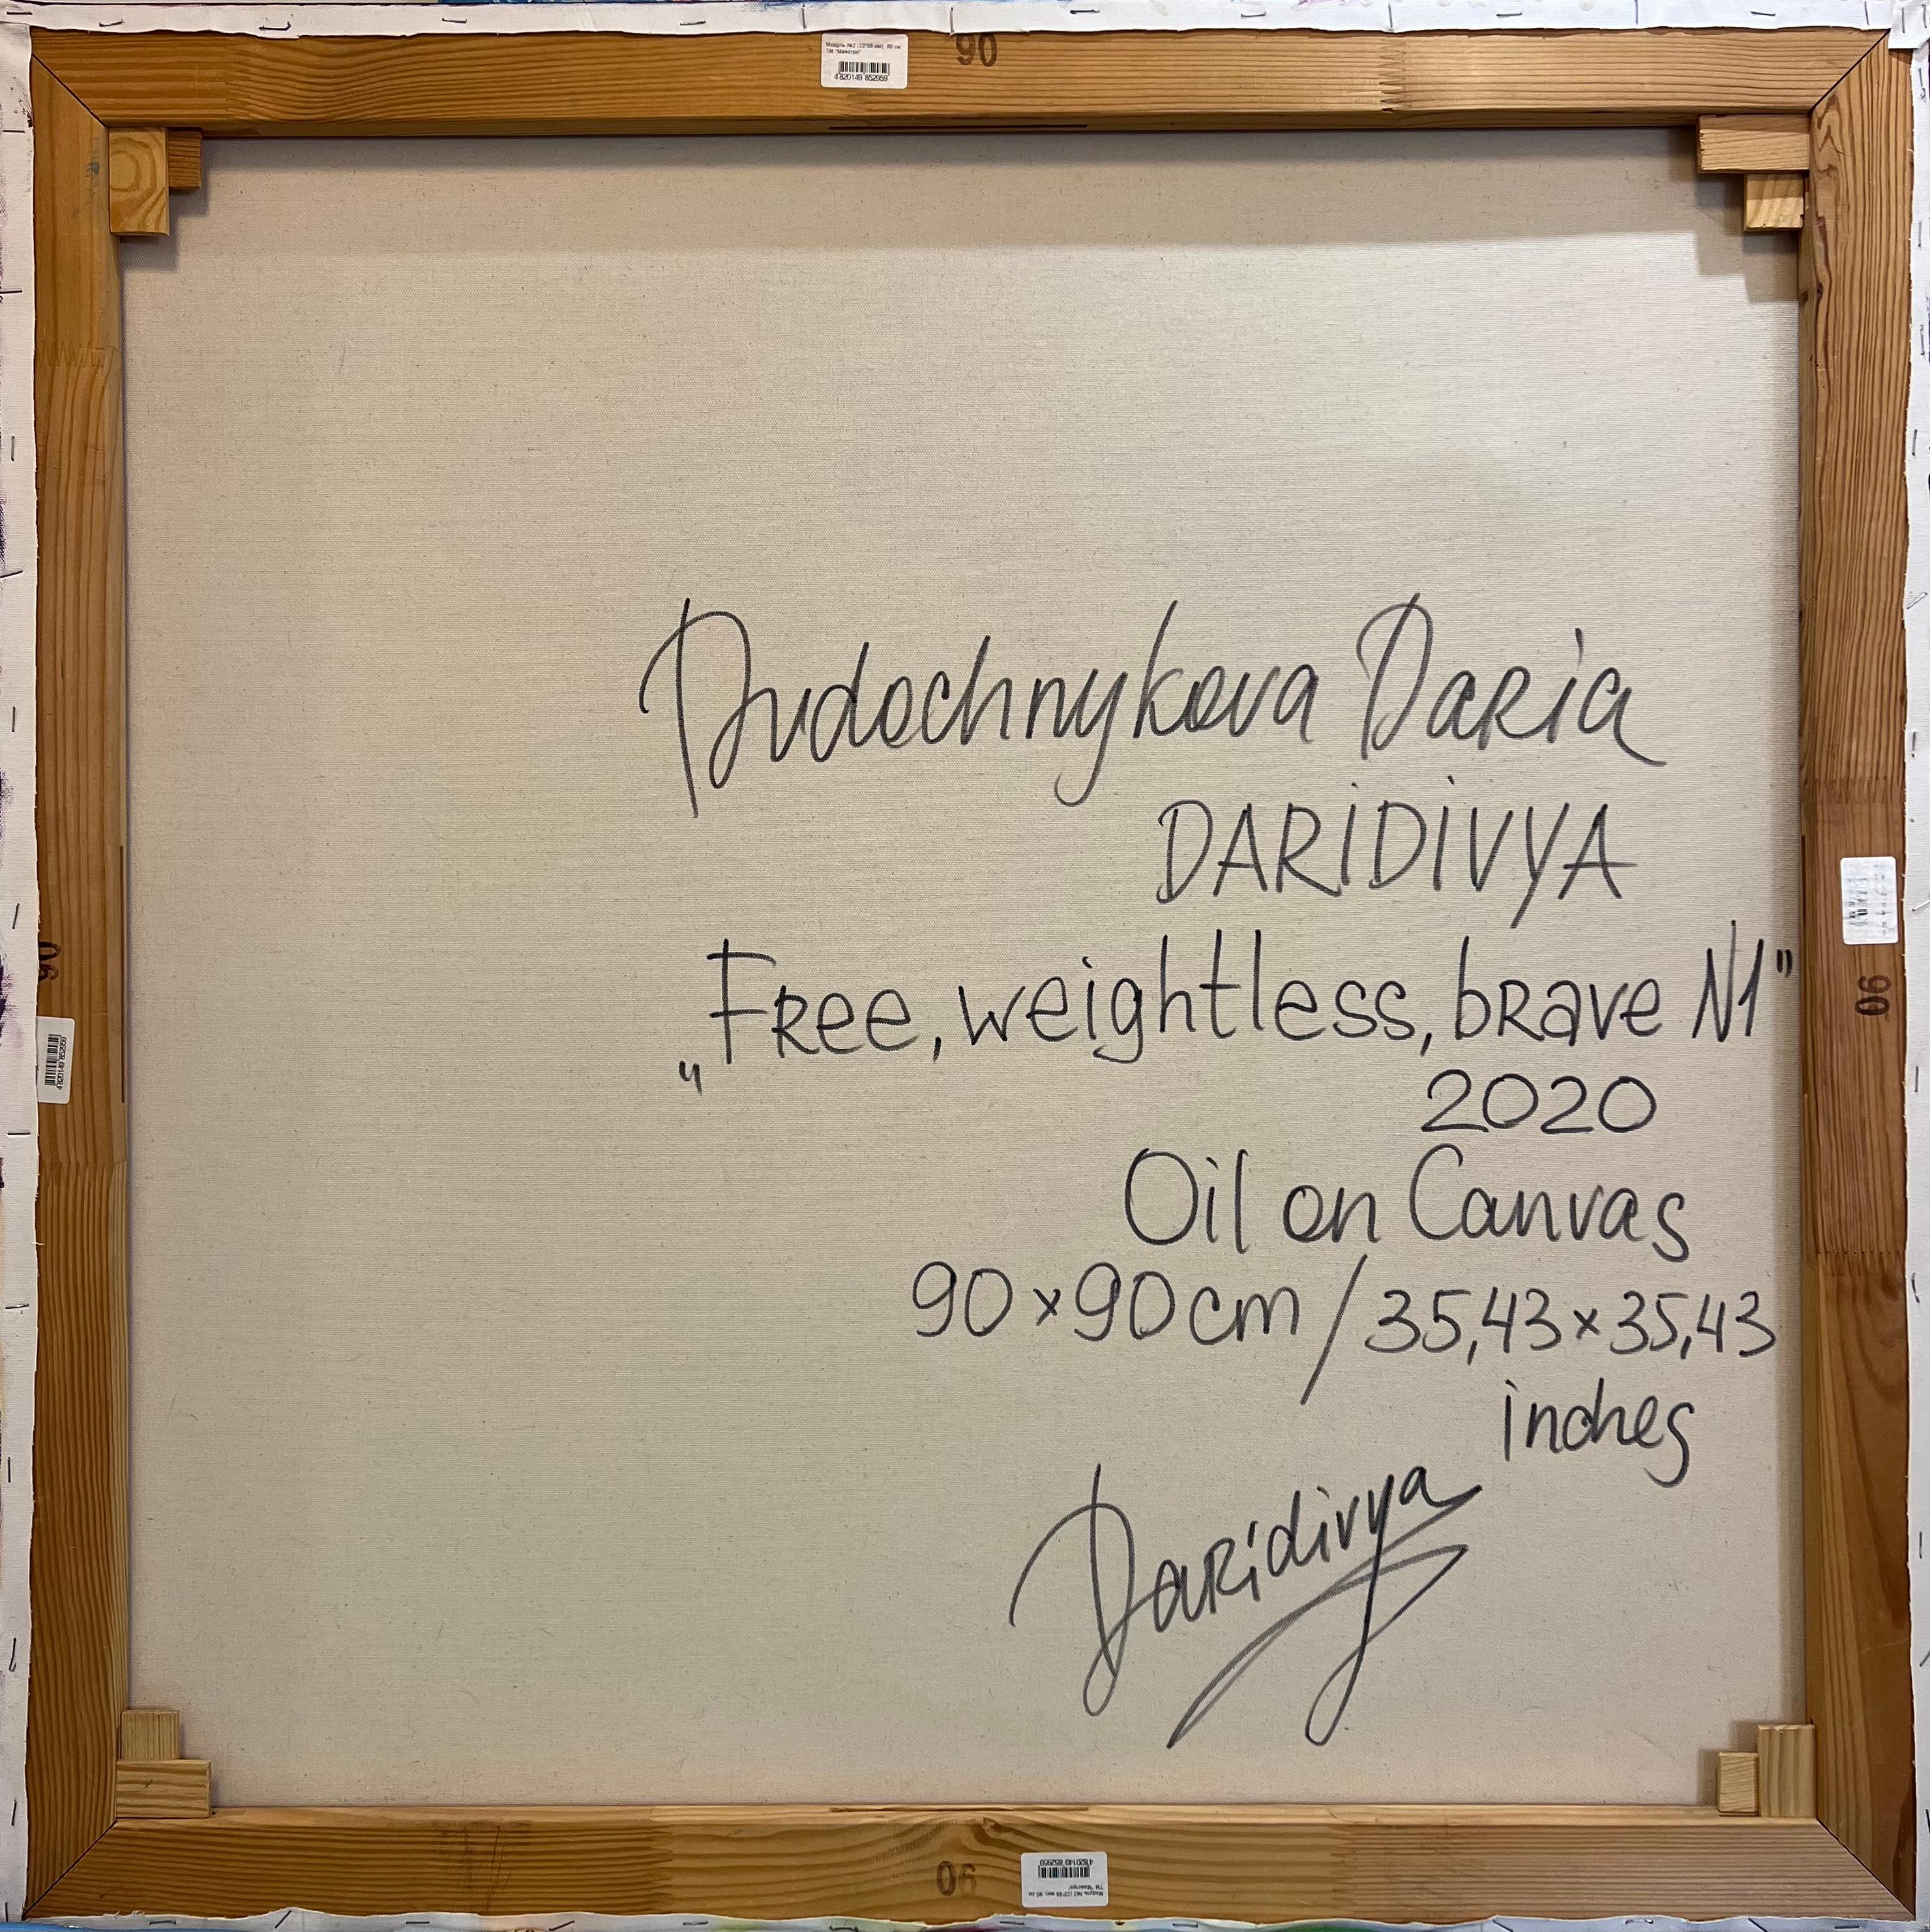 Модуль №2 (22*58 мм), 90 см
ТМ "Маэстро"
4 820149 852959
90
Dudochnykova Daria
DARiDiVYA
„Free, weightless, brave N1"
2020
Oil on Canvas
90×90cm / 35,43×35,43
inches
Daridivya
90
4 820149 852959
90
90
4 820149 852959